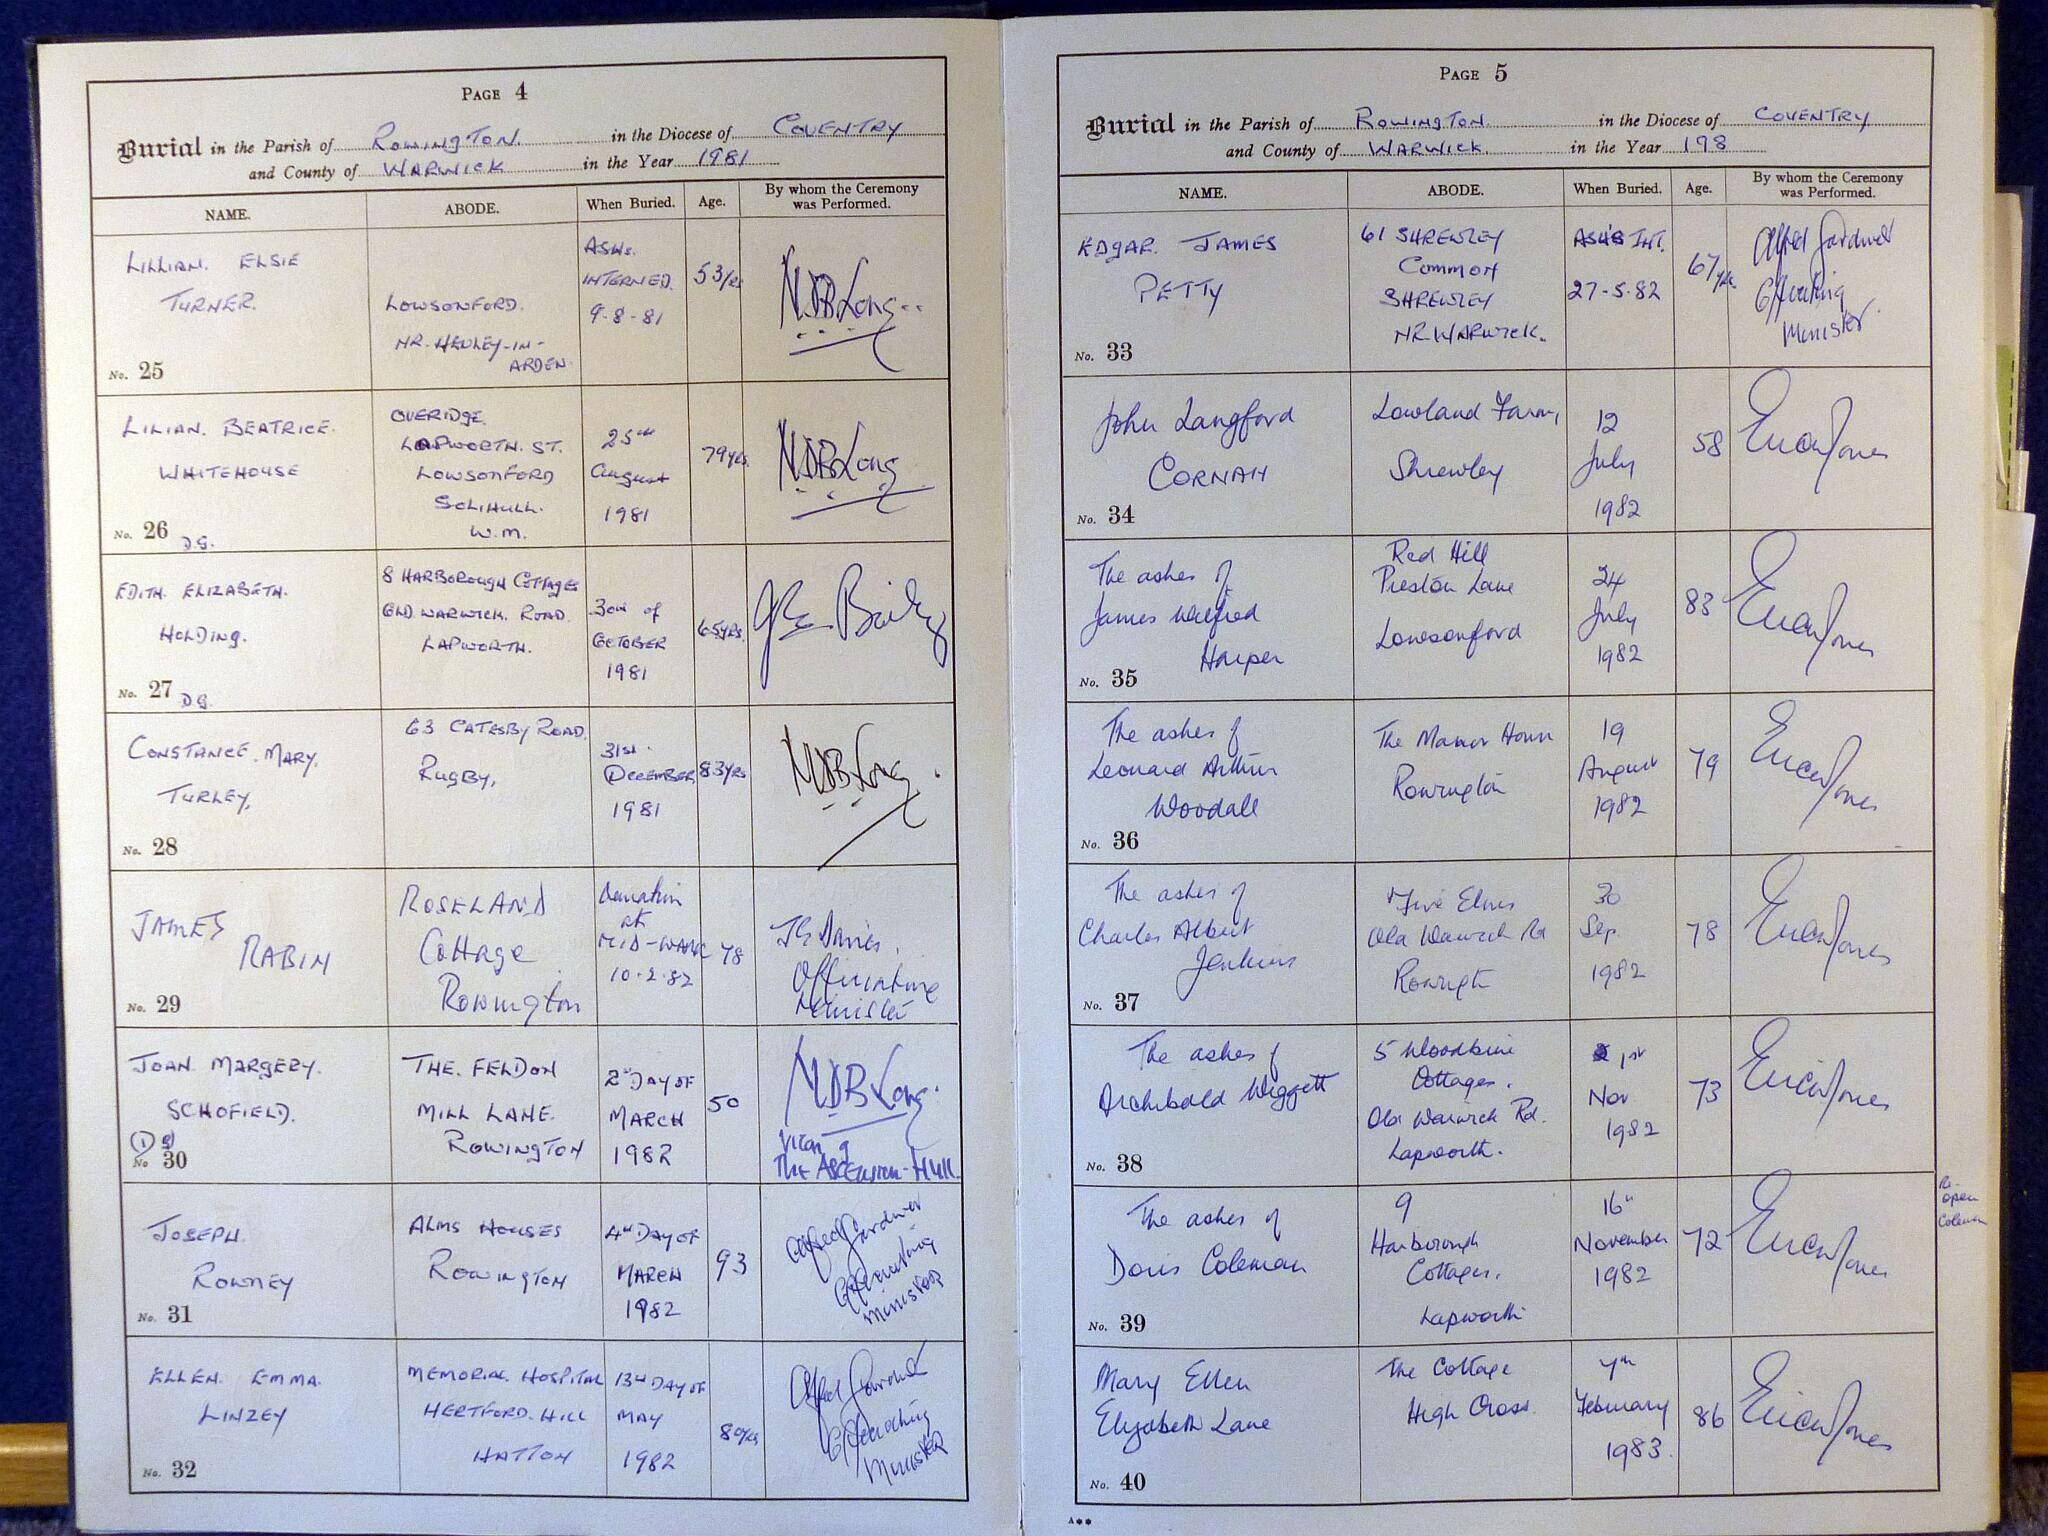 PAGE 4
Burial in the Parish of ROWINGTON. in the Diocese of COVENTRY
and County of WARWICK in the Year 1981
NAME. ABODE. When Buried. Age. By whom the Ceremony was Performed.
LILLIAN. ELSIE
TURNER.
No. 25
LOWSONFORD.
NR. HENLEY-IN-
ARDEN.
ASHS.
INTERNED.
9-8-81
53/rs
NDB Long
LILIAN. BEATRICE.
WHITEHOUSE
No. 26 D.G.
OVERIDGE.
LAPWORTH. ST.
LOWSONFORD
SOLIHULL.
W.M.
25TH
August
1981
79 YRS.
NDB Long
EDITH. ELIZABETH.
HOLDING.
No. 27 D.G.
8 HARBOROUGH COTTAGES
OLD. WARWICK. ROAD.
LAPWORTH.
30TH of
OCTOBER
1981
65YRS.
Bailey
CONSTANCE. MARY.
TURLEY,
No. 28
63 CATESBY ROAD.
RUGBY,
31ST.
DECEMBER
1981
83YRS
NDB Long
JAMES
RABIN
No. 29
ROSELAND
Cottage
Rowington
Cremation
at
MID-WARK
10.2.82
78
Davies.
Officiating
Minister
JOAN. MARGERY.
SCHOFIELD.
No 30
THE. FELDON
MILL LANE.
ROWINGTON
2ND DAY OF
MARCH
1982
50
NDB Long.
Vicar of
THE ASCENSION - HULL.
JOSEPH.
ROWNEY
No. 31
ALMS HOUSES
ROWINGTON
4TH DAY OF
MARCH
1982
93
Alfred Gardner
Officiating
Minister
ELLEN. EMMA.
LINZEY
No. 32
MEMORIAL. HOSPITAL
HERTFORD. HILL
HATTON
13TH DAY OF
MAY
1982
80YRS
Alfred Gardner
Officiating
Minister
PAGE 5
Burial in the Parish of ROWINGTON. in the Diocese of COVENTRY
and County of WARWICK. in the Year 198
NAME. ABODE. When Buried. Age. By whom the Ceremony was Performed.
EDGAR. JAMES
PETTY
No. 33
61 SHREWLEY
COMMON
SHREWLEY
NR. WARWICK.
ASH'S INT.
27-5-82
67 yrs.
Alfred Gardner
Officiating
Minister.
John Langford
CORNAH
No. 34
Lowland Farm,
Shrewley
12
July
1982
58
Eric Jones
The ashes of
James Wilfred
Harper
No. 35
Red Hill
Preston Lane
Lowsonford
24
July
1982
83
Eric Jones
The ashes of
Leonard Arthur
Woodall
No. 36
The Manor House
Rowington
19
August
1982
79
Eric Jones
The ashes of
Charles Albert
Jenkins
No. 37
Five Elms
Old Warwick Rd
Rowingtn
30
Sep.
1982
78
Eric Jones
The ashes of
Archibald Wiggett
No. 38
5 Woodbine
Cottages.
Old Warwick Rd.
Lapworth.
1st
Nov
1982
73
Eric Jones
The ashes of
Doris Coleman
No. 39
9
Harborough
Cottages.
Lapworth
16th
November
1982
72
Eric Jones
Re-
open
Coleman
Mary Ellen
Elizabeth Lane
No. 40
The Cottage
High Cross.
7th
February
1983.
86
Eric Jones
A**